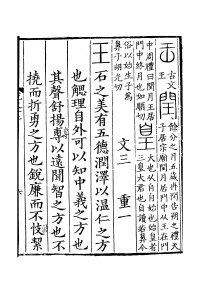 古文
王
閏
餘分之月五歲再閏告朔之禮天
子居宗廟閏月居門中从王在門
中周禮曰閏月王居
門中終月也如順切
皇
大也从自自始也始皇者
三皇大君也自讀若鼻今
俗以始生子爲
鼻子胡光切
文三 重一
王 石之美有五德潤澤以温仁之方
也䚡理自外可以知中義之方也
其聲舒揚尃以遠聞智之方也不
橈而折勇之方也銳廉而不忮絜